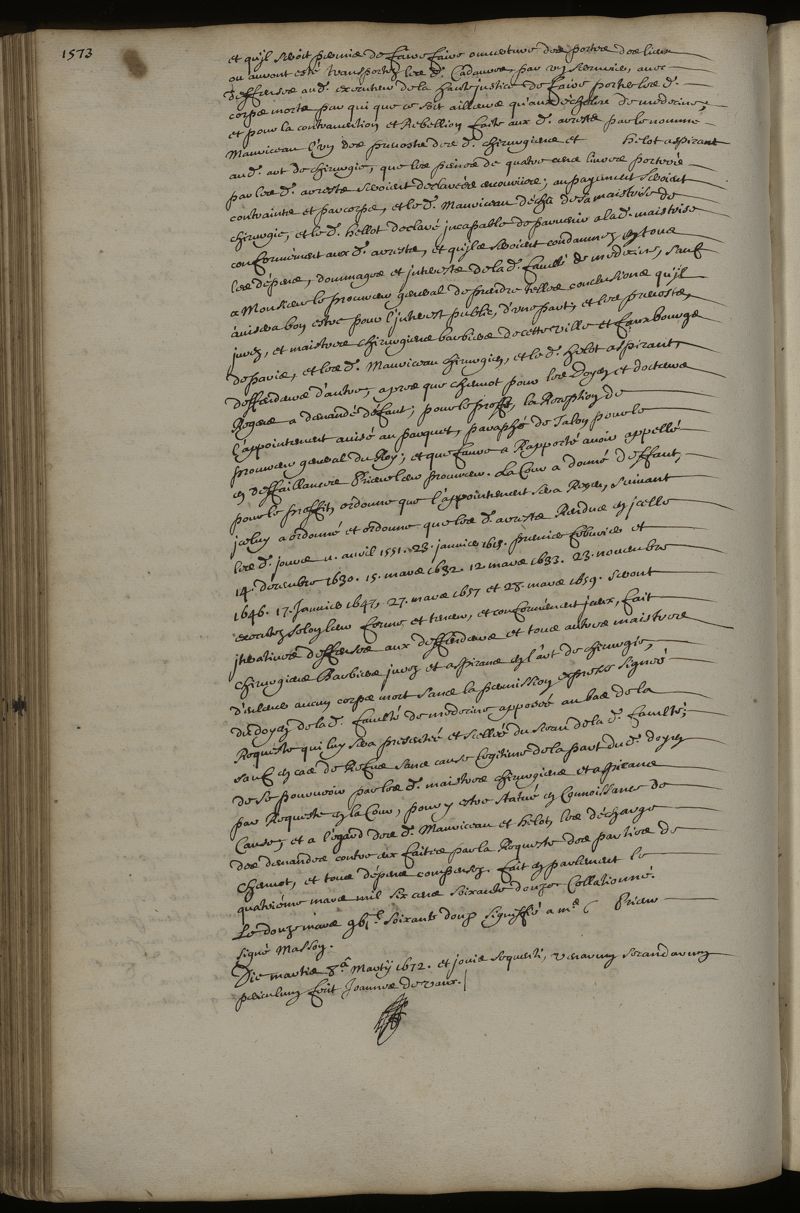 1573
et qu'il seroit permis de faire faire ouverture des portes des lieux
ou auront esté transportez les d. Cadavres, par un serrurier, avec
deffenses aud. executeur de la haute justice de faire porter les d.
corps morts par qui que ce soit ailleurs qu'aux d. écholes de medecine;
et pour la contravention et Rebellion faite aux d. arrests par le nommé
Mauriceau l'un des prevosts des d. chirurgiens et Helot aspirant
aud. art de chirurgie, que les peines de quatre cens livres portées
par les d. arrests seroient declarées encourues; au payement seroient
contraints et par corps, et le d. Mauriceau déchû de sa maistrise de
chirurgie, et le d. Hellot declaré incapable de parvenir a la d. maistrise
conformement aux d. arrests, et qu'ils seroient condamnez en tous
les dépens, dommages et interests de la d. faculté de medecine, sauf
a Monsieur le procureur general de prendre telles conclusions qu'il
avisera bon estre pour l'interest public, d'une part, et les prevosts,
jurez, et maistres chirurgiens barbiers de cette ville et fauxbourgs
de paris, et les d. Mauriceau chirurgien, et le d. Helot aspirant,
deffendeurs d'autre, apres que Chenot pour les Doyen et docteurs
Regens a demandé défaut; pour le proffit, la Reception de
l'appointement avisé au parquet, paraphé de Talon pour le
procureur general du Roy; et que faure a Rapporté avoir appellé
en deffaillances Prieur leur procureur. La Cour a donné deffaut,
pour le proffit, ordonne que l'appointement sera Receu, suivant
iceluy a ordonné et ordonne que les d. arrests Rendus en icelle
les d. jours 11. avril 1551. 23. janvier 1615. premier febvrier et
14. decembre 1630. 15. mars 1632. 12. mars 1633. 23. novembre
1646. 17. Janvier 1647, 27. mars 1657 et 28. mars 1659. seront
executez selon leur forme et teneur, et conformément jceux, fait
jteratives deffenses aux deffendeurs et tous autres maistres
chirurgiens Barbiers jurez et aspirans en l'art de chirurgie,
d'enlever aucun corps mort sans la permission expresse signée
du doyen de la d. faculté de medecine apposée au bas de la
Requeste qui luy sera presentée et scellée du sceau de la d. faculté;
sauf en cas de Refus sans cause legitime de la part dud. doyen
de se pourvoir par les d. maistres chirurgiens et aspirans
par Requeste en la Cour, pour y estre statué en Connoissance de
Cause; et a l'égard des d. Mauriceau et Helot, les décharge
des demandes contre eux faites par la Requeste des parties de
Chenot, et tous dépens compensez. fait en parlement le
quatriéme mars mil six cens soixante douze. Collationné.
Le douze mars soixante douze signiffié a me. C Prieur
signé Masson.
Die martis 8a. Martij 1672. et jovis sequenti, venarum secandarum
periculum fecit Joannes de vaux.